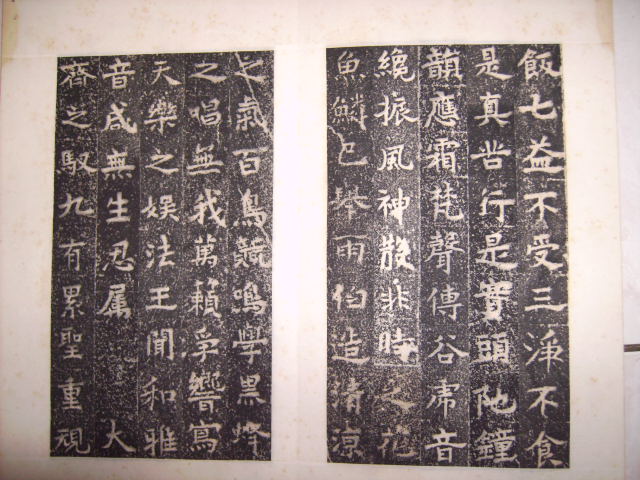 飯七益不受三淨不食
是真苦行是實頭陁鐘
韻應霜梵聲傳谷虎音
纔振風神散非時之花
魚鱗已舉雨伯造清涼
之氣百鳥競鳴學黑蜂
之唱無我萬籟爭響寫
天樂之娛法王聞和雅
音咸無生忍属 大
齊之馭九有累聖重視